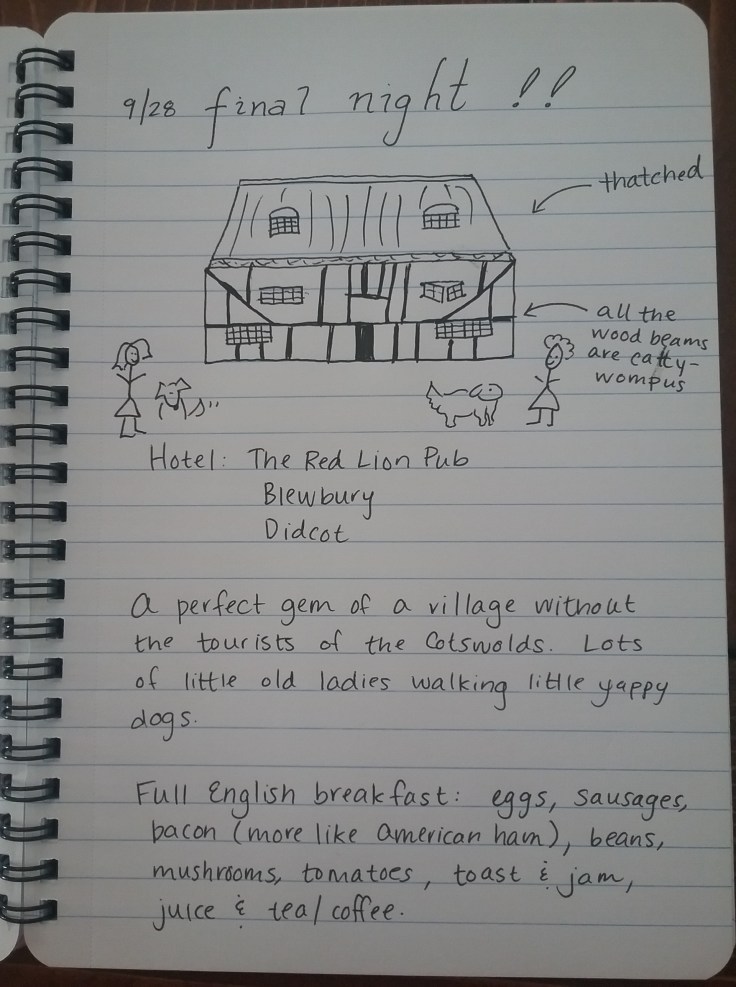 9/28 final night !!
thatched
all the
wood beams
are catty-
wompus
Hotel: The Red Lion Pub
Blewbury
Didcot
A perfect gem of a village without
the tourists of the Cotswolds. Lots
of little old ladies walking little yappy
dogs.
Full English breakfast: eggs, sausages,
bacon (more like American ham), beans,
mushrooms, tomatoes, toast & jam,
juice & tea/coffee.